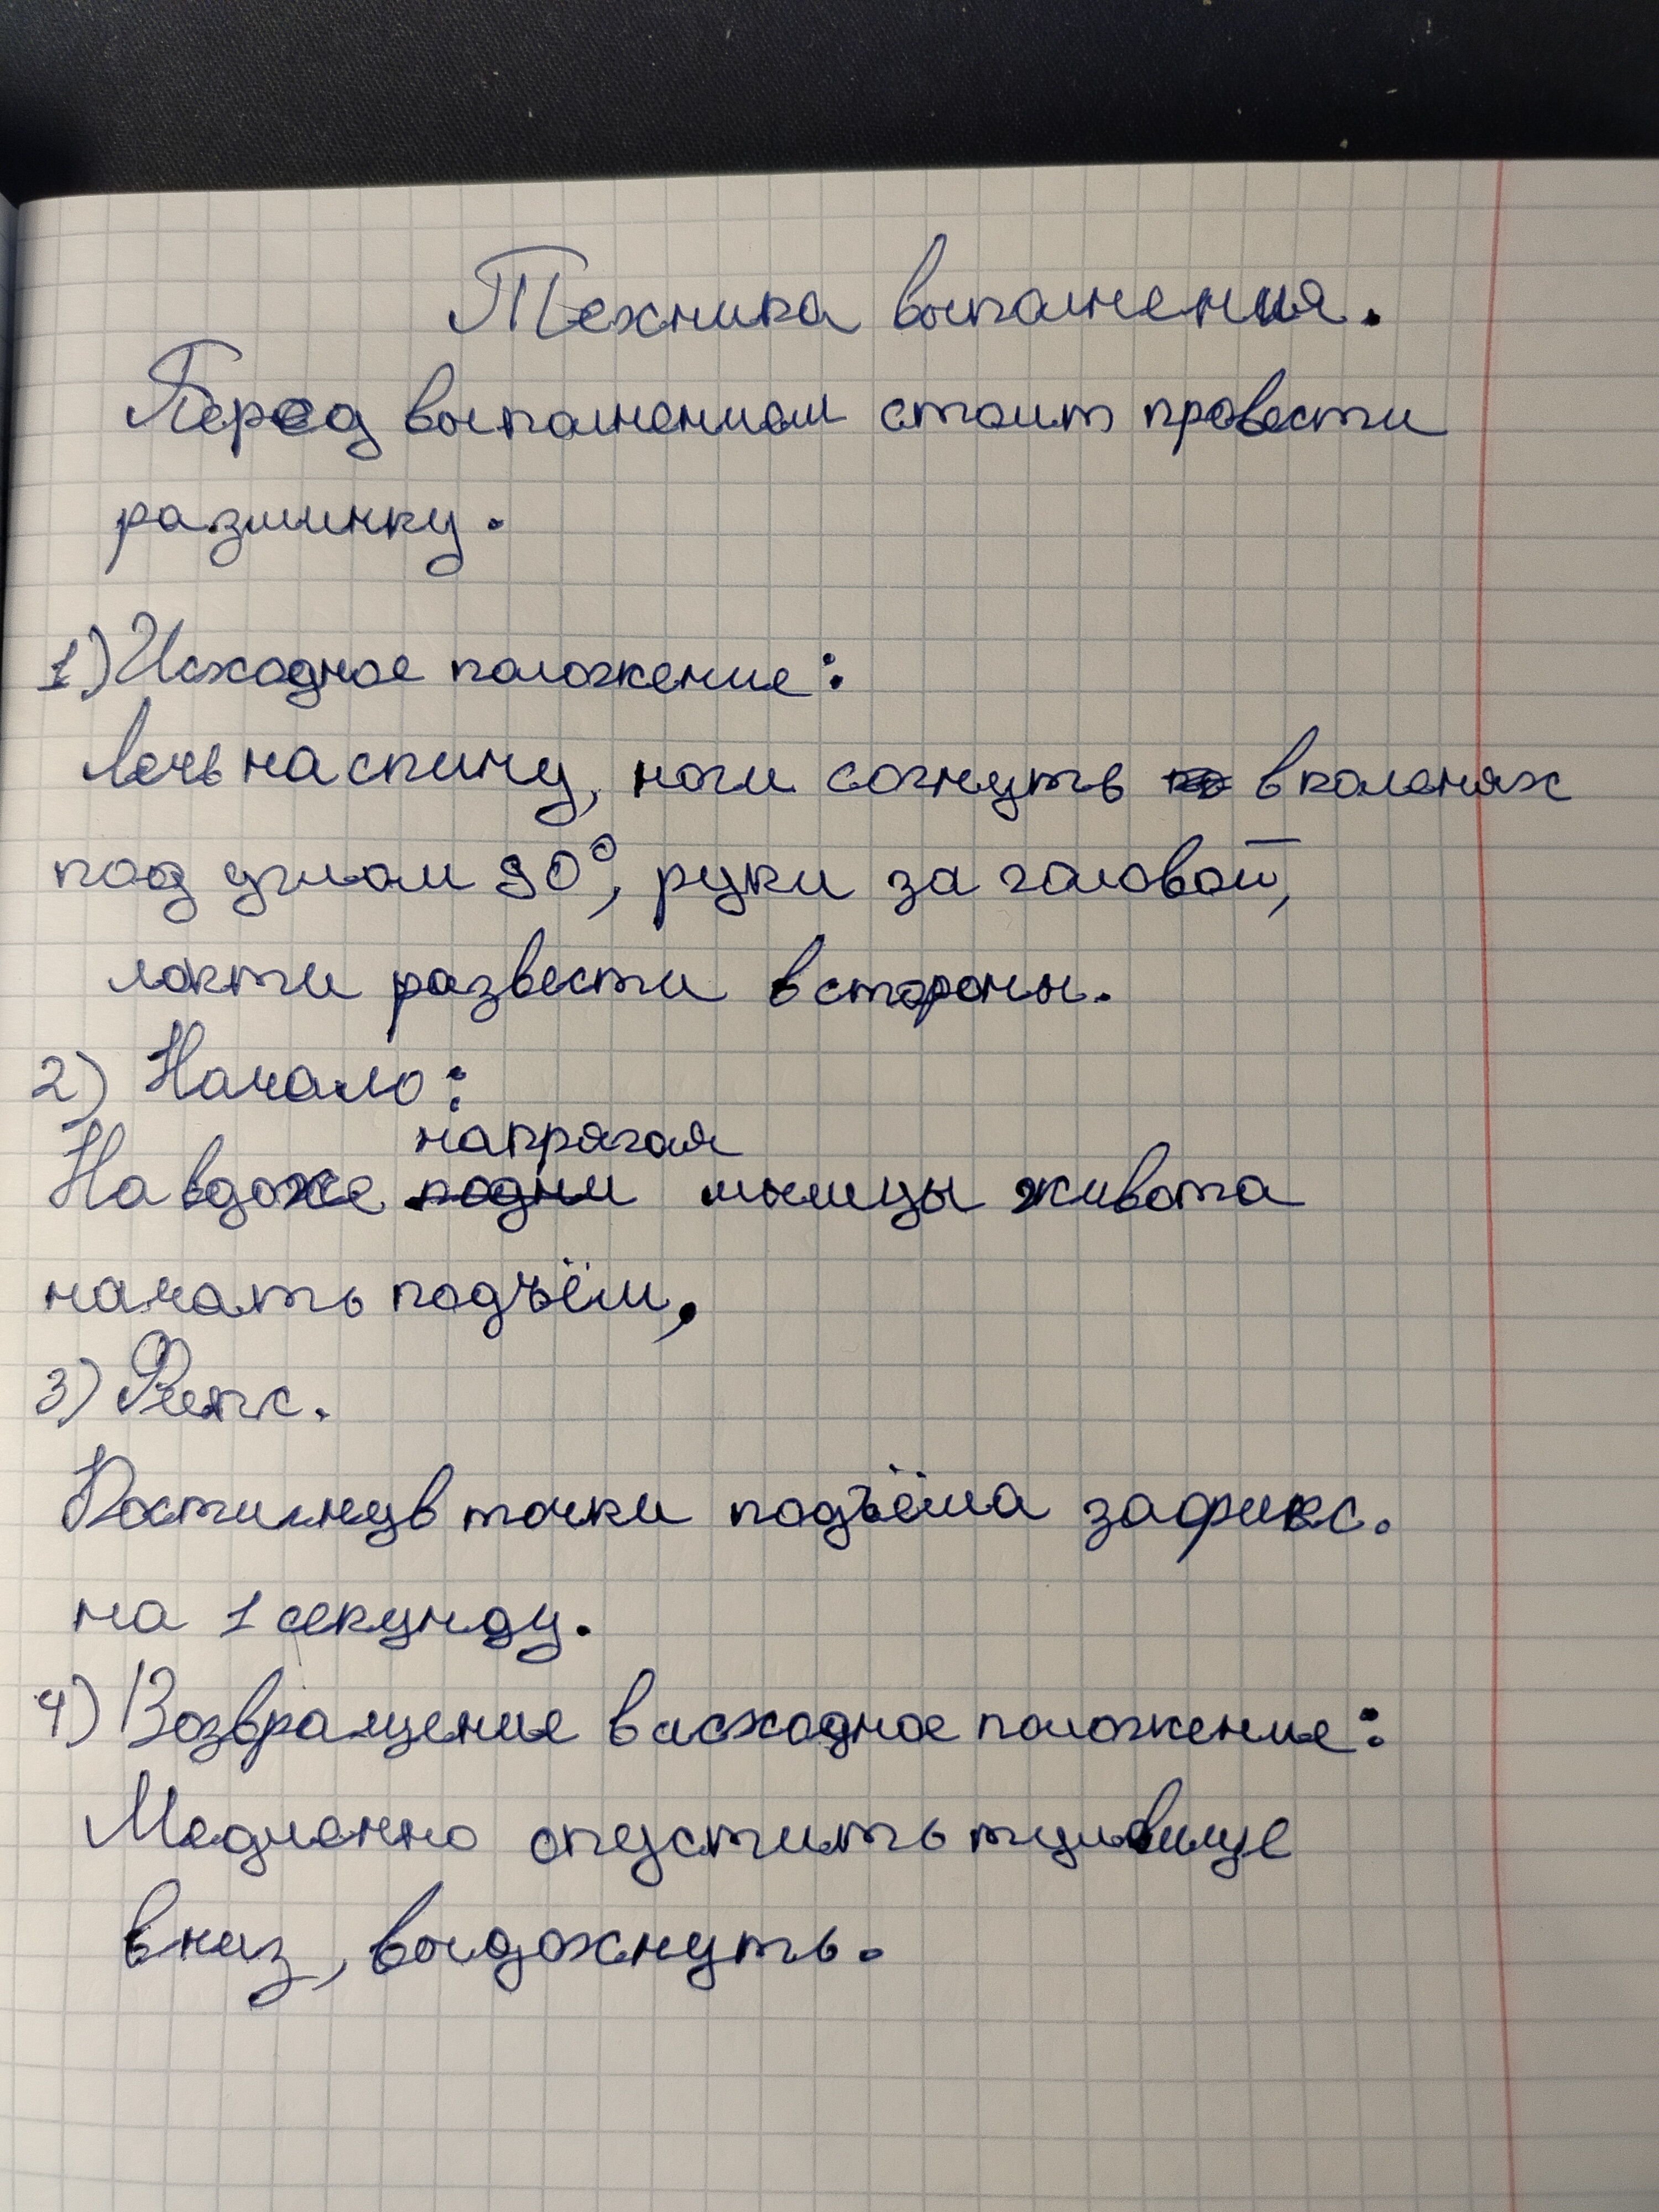 Техника выполнения.
Перед выполнением стоит провести
разминку.
1) Исходное положение:
лечь на спину, ноги согнуть в коленях
под углом 90°, руки за головой,
локти развести в стороны.
2) Начало:
напрягая
На вдохе подни мышцы живота
начать подъём,
3) Фикс.
Достигнув точки подъёма зафикс.
на 1 секунду.
4) Возвращение в исходное положение:
Медленно опустить туловище
вниз, выдохнуть.